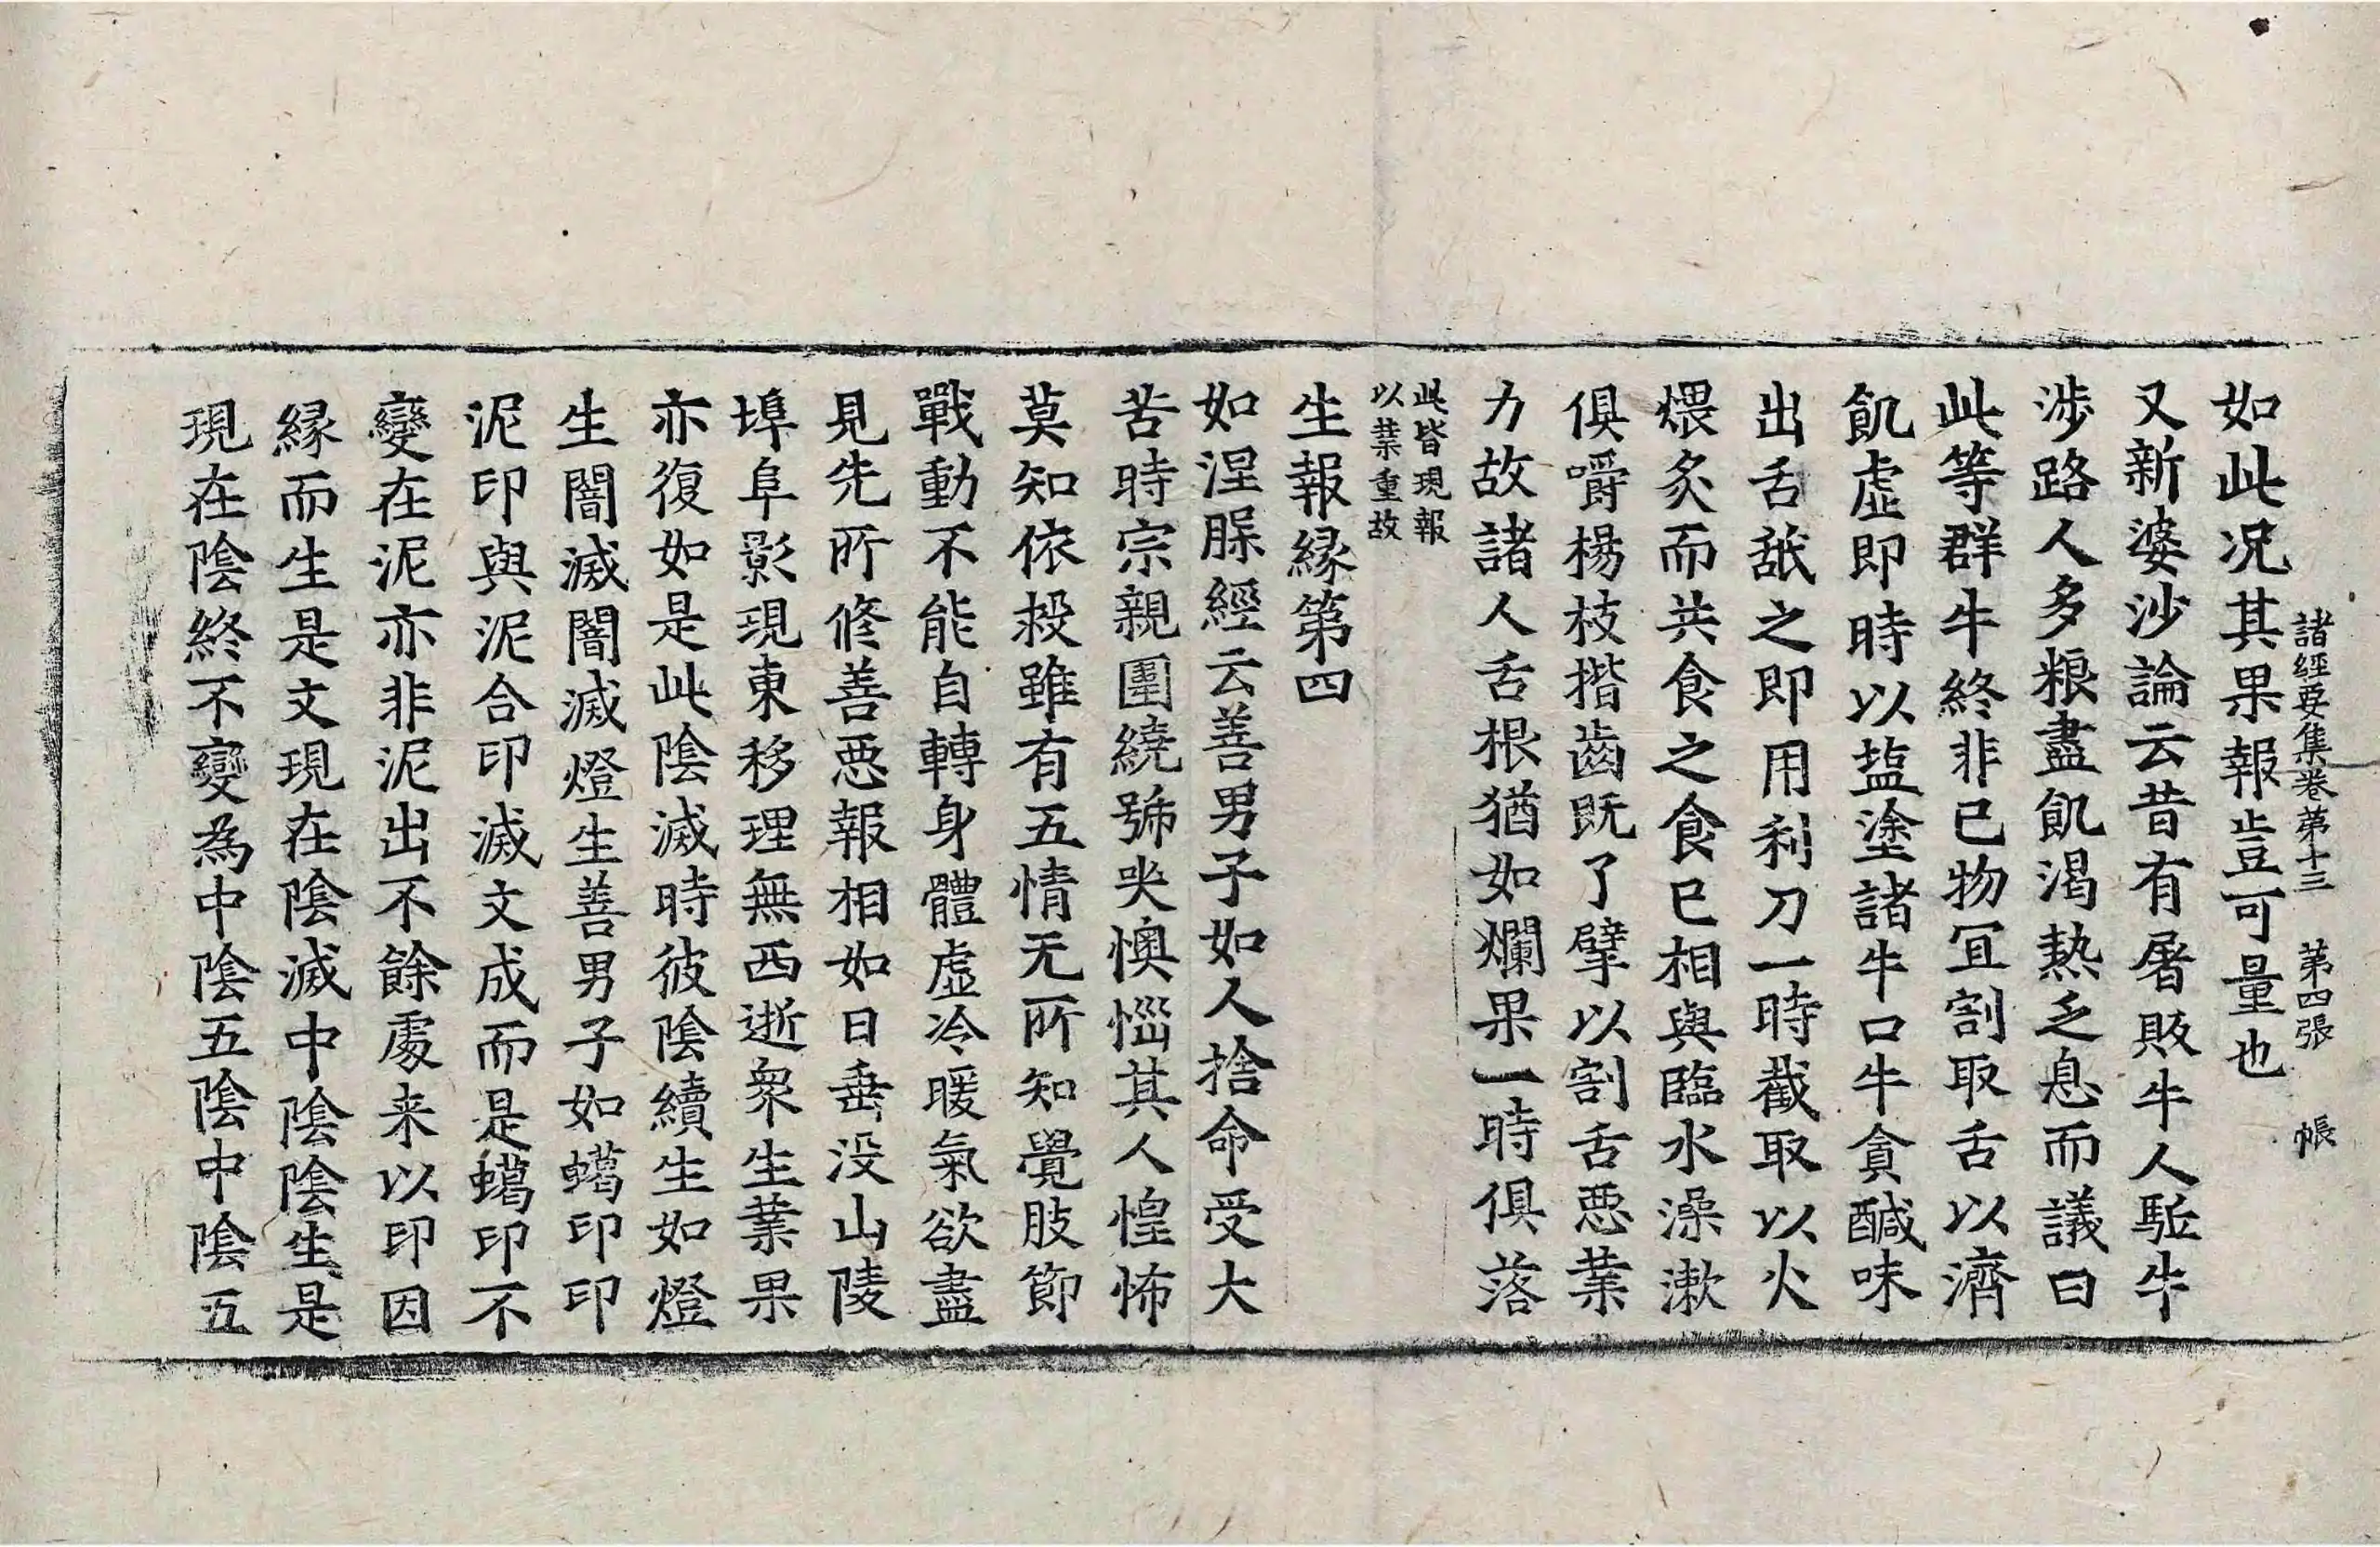 諸經要集卷第十三 第四張 帳
如此况其果報豈可量也
又新婆沙論云昔有屠販牛人駈牛
涉路人多粮盡飢渴熱乏息而議曰
此等群牛終非已物冝割取舌以濟
飢虛即時以塩塗諸牛口牛貪醎味
出舌舐之即用利刀一時截取以火
煨炙而共食之食已相與臨水澡漱
俱嚼楊枝揩齒既了擘以割舌惡業
力故諸人舌根猶如爛果一時俱落
此皆現報
以業重故
生報縁第四
如涅槃經云善男子如人捨命受大
苦時宗親圍繞號哭懊惱其人惶怖
莫知依救雖有五情无所知覺肢節
戰動不能自轉身體虛冷暖氣欲盡
見先所修善惡報相如日垂没山陵
埠阜影現東移理無西逝衆生業果
亦復如是此陰滅時彼陰續生如燈
生闇滅闇滅燈生善男子如蠟印印
泥印與泥合印滅文成而是蠟印不
變在泥亦非泥出不餘處来以印因
縁而生是文現在陰滅中陰陰生是
現在陰終不變為中陰五陰中陰五